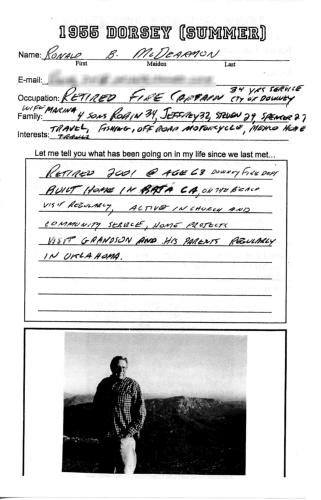 1955 DORSEY (SUMMER)
Name: RONALD B. McDEARMON
First Maiden Last
E-mail:
34 YRS SERVICE
Occupation: RETIRED FIRE CAPTAIN CTY OF DOWNEY
WIFE MARNA
Family: 4 SONS ROBIN 34, JEFFREY 32, STEVEN 29, SPENCER 27
Interests: TRAVEL, FISHING, OFF ROAD MOTORCYCLE, MEXICO HOME
TRAVEL
Let me tell you what has been going on in my life since we last met...
RETIRED 2001 @ AGE 63 DOWNEY FIRE DEPT
BUILT HOME IN BAJA CA, ON THE BEACH
VISIT REGULARLY, ACTIVE IN CHURCH AND
COMMUNITY SERVICE, HOME PROJECTS
VISIT GRANDSON AND HIS PARENTS REGULARLY
IN OKLAHOMA.